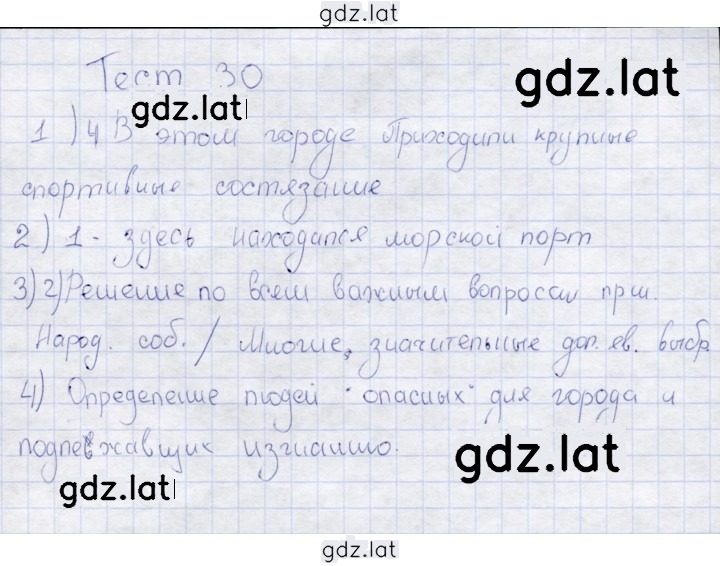 gdz.lat
Тест 30
gdz.lat
gdz.lat
1) 4 В этом городе Приходили крупные
спортивные состязание
2) 1 - здесь находился морской порт
3) 2) Решение по всем важным вопросам прин.
Народ. соб. / Многие, значительные дол. ев. выбр
4) Определение людей "опасных" для города и
подлежавших изгнанию.
gdz.lat
gdz.lat
gdz.lat